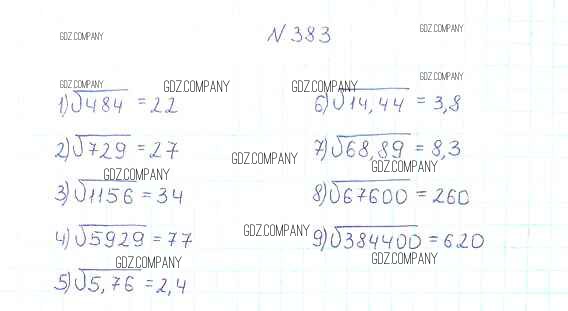 N 383
GDZ.COMPANY
GDZ.COMPANY
GDZ.COMPANY
GDZ.COMPANY
GDZ.COMPANY
GDZ.COMPANY
1) √484 = 22
2) √729 = 27
GDZ.COMPANY
3) √1156 = 34
4) √5929 = 77
GDZ.COMPANY
5) √5,76 = 2,4
6) √14,44 = 3,8
GDZ.COMPANY
7) √68,89 = 8,3
GDZ.COMPANY
8) √67600 = 260
GDZ.COMPANY
9) √384400 = 620
GDZ.COMPANY